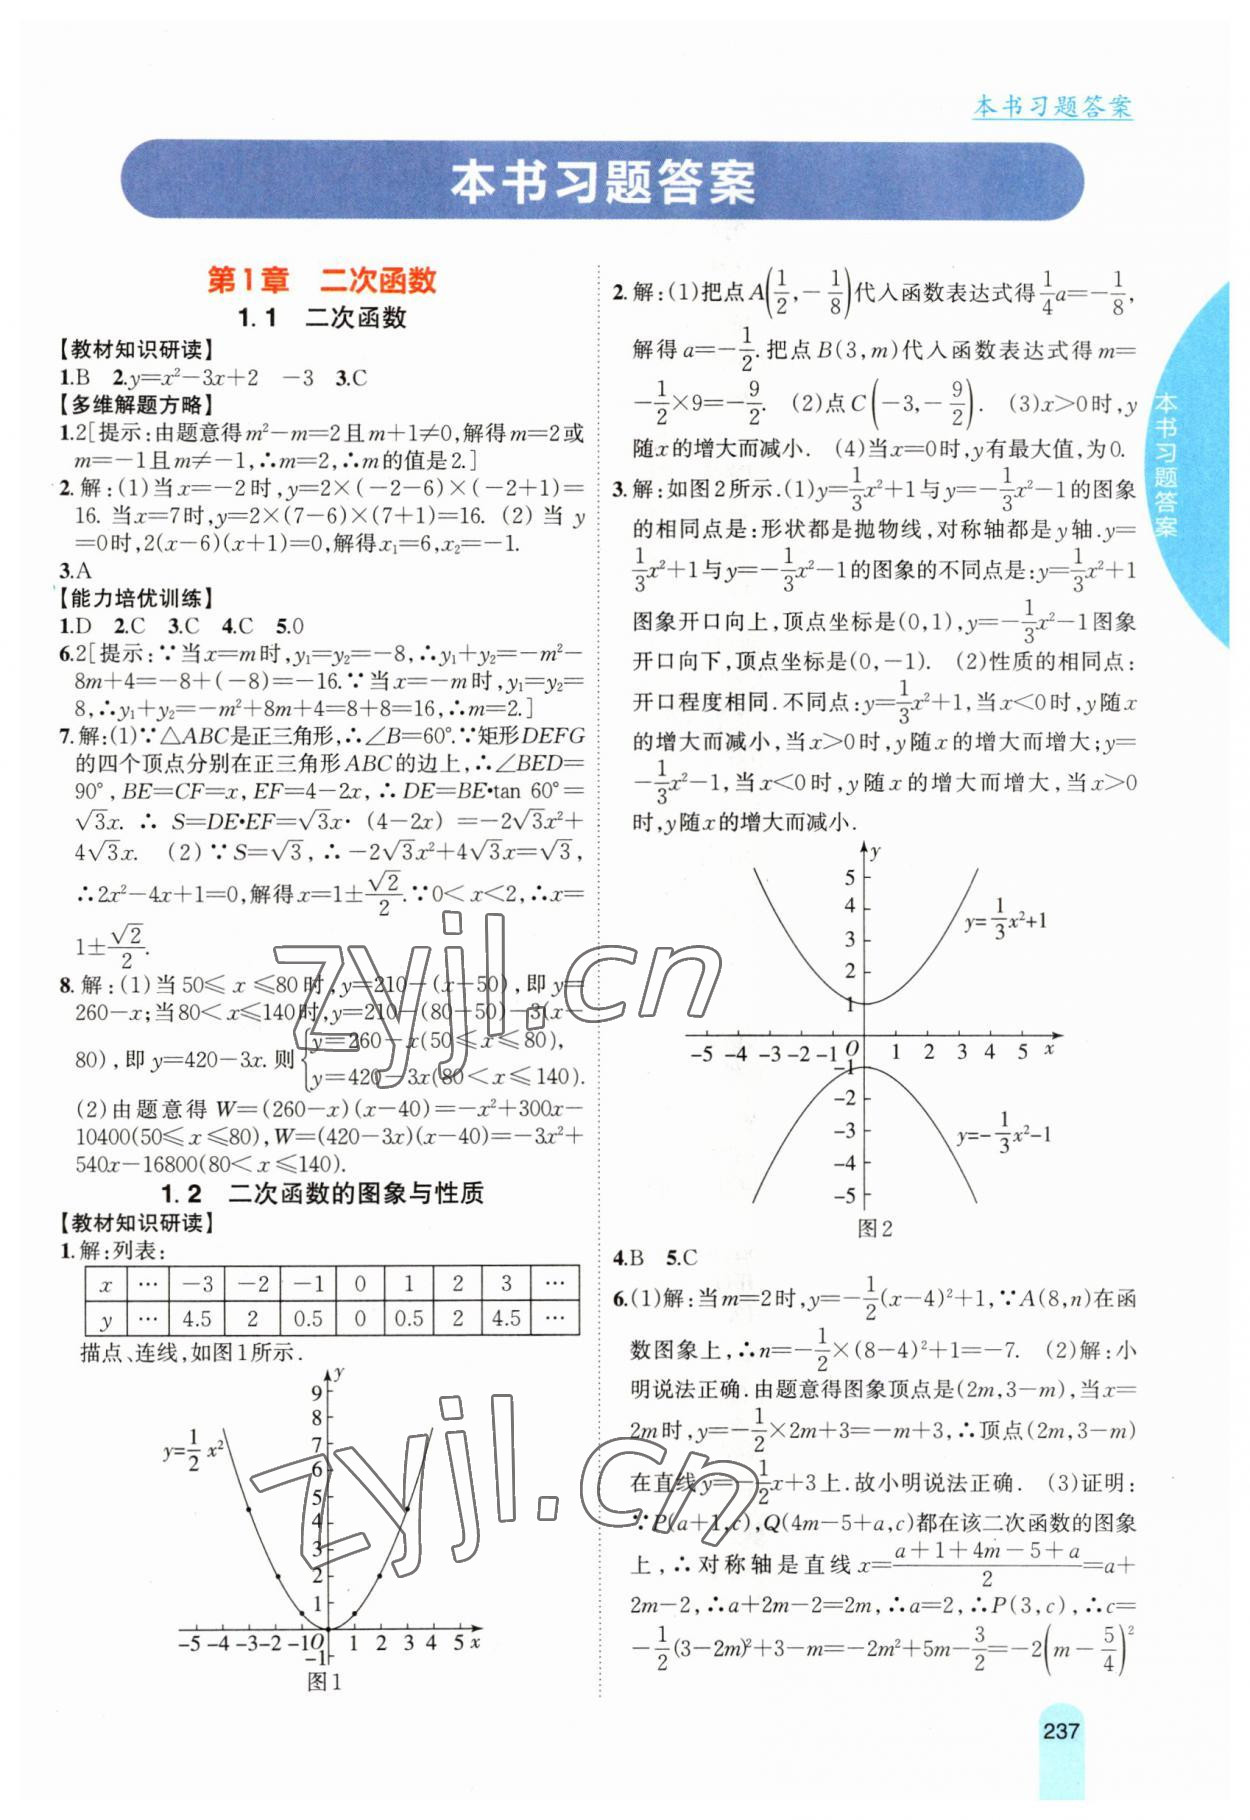 本书习题答案
本书习题答案
第1章 二次函数
1.1 二次函数
【教材知识研读】
1.B 2.y=x²-3x+2 -3 3.C
【多维解题方略】
1.2[提示:由题意得m²-m=2且m+1≠0,解得m=2或
m=-1且m≠-1,∴m=2,∴m的值是2.]
2.解:(1)当x=-2时,y=2×(-2-6)×(-2+1)=
16.当x=7时,y=2×(7-6)×(7+1)=16. (2)当y
=0时,2(x-6)(x+1)=0,解得x₁=6,x₂=-1.
3.A
【能力培优训练】
1.D 2.C 3.C 4.C 5.0
6.2[提示:∵当x=m时,y₁=y₂=-8,∴y₁+y₂=-m²-
8m+4=-8+(-8)=-16.∵当x=-m时,y₁=y₂=
8,∴y₁+y₂=-m²+8m+4=8+8=16,∴m=2.]
7.解:(1)∵△ABC是正三角形,∴∠B=60°.∵矩形DEFG
的四个顶点分别在正三角形ABC的边上,∴∠BED=
90°,BE=CF=x,EF=4-2x,∴DE=BE•tan 60°=
√3x.∴S=DE•EF=√3x·(4-2x)=-2√3x²+
4√3x. (2)∵S=√3,∴-2√3x²+4√3x=√3,
∴2x²-4x+1=0,解得x=1±√2/2.∵0<x<2,∴x=
1±√2/2.
8.解:(1)当50≤x≤80时,y=210-(x-50),即y=
260-x;当80<x≤140时,y=210-(80-50)-3(x-
80),即y=420-3x.则{y=260-x(50≤x≤80),
y=420-3x(80<x≤140).
(2)由题意得W=(260-x)(x-40)=-x²+300x-
10400(50≤x≤80),W=(420-3x)(x-40)=-3x²+
540x-16800(80<x≤140).
1.2 二次函数的图象与性质
【教材知识研读】
1.解:列表:
x … -3 -2 -1 0 1 2 3 …
y … 4.5 2 0.5 0 0.5 2 4.5 …
描点、连线,如图1所示.
y
9
8
7
6
5
4
3
2
1
y=1/2 x²
-5 -4 -3 -2 -1 O 1 2 3 4 5 x
-1
图1
2.解:(1)把点A(1/2,-1/8)代入函数表达式得1/4a=-1/8,
解得a=-1/2.把点B(3,m)代入函数表达式得m=
-1/2×9=-9/2. (2)点C(-3,-9/2). (3)x>0时,y
随x的增大而减小. (4)当x=0时,y有最大值,为0.
3.解:如图2所示.(1)y=1/3x²+1与y=-1/3x²-1的图象
的相同点是:形状都是抛物线,对称轴都是y轴.y=
1/3x²+1与y=-1/3x²-1的图象的不同点是:y=1/3x²+1
图象开口向上,顶点坐标是(0,1),y=-1/3x²-1图象
开口向下,顶点坐标是(0,-1). (2)性质的相同点:
开口程度相同.不同点:y=1/3x²+1,当x<0时,y随x
的增大而减小,当x>0时,y随x的增大而增大;y=
-1/3x²-1,当x<0时,y随x的增大而增大,当x>0
时,y随x的增大而减小.
y
5
4
3
2
1
y=1/3x²+1
-5 -4 -3 -2 -1 O 1 2 3 4 5 x
-1
-2
-3
-4
-5
y=-1/3x²-1
图2
4.B 5.C
6.(1)解:当m=2时,y=-1/2(x-4)²+1,∵A(8,n)在函
数图象上,∴n=-1/2×(8-4)²+1=-7. (2)解:小
明说法正确.由题意得图象顶点是(2m,3-m),当x=
2m时,y=-1/2×2m+3=-m+3,∴顶点(2m,3-m)
在直线y=-1/2x+3上.故小明说法正确. (3)证明:
∵P(a+1,c),Q(4m-5+a,c)都在该二次函数的图象
上,∴对称轴是直线x=(a+1+4m-5+a)/2=a+
2m-2,∴a+2m-2=2m,∴a=2,∴P(3,c),∴c=
-1/2(3-2m)²+3-m=-2m²+5m-3/2=-2(m-5/4)²
本书习题答案
237
zyjl.cn
zyjl.cn